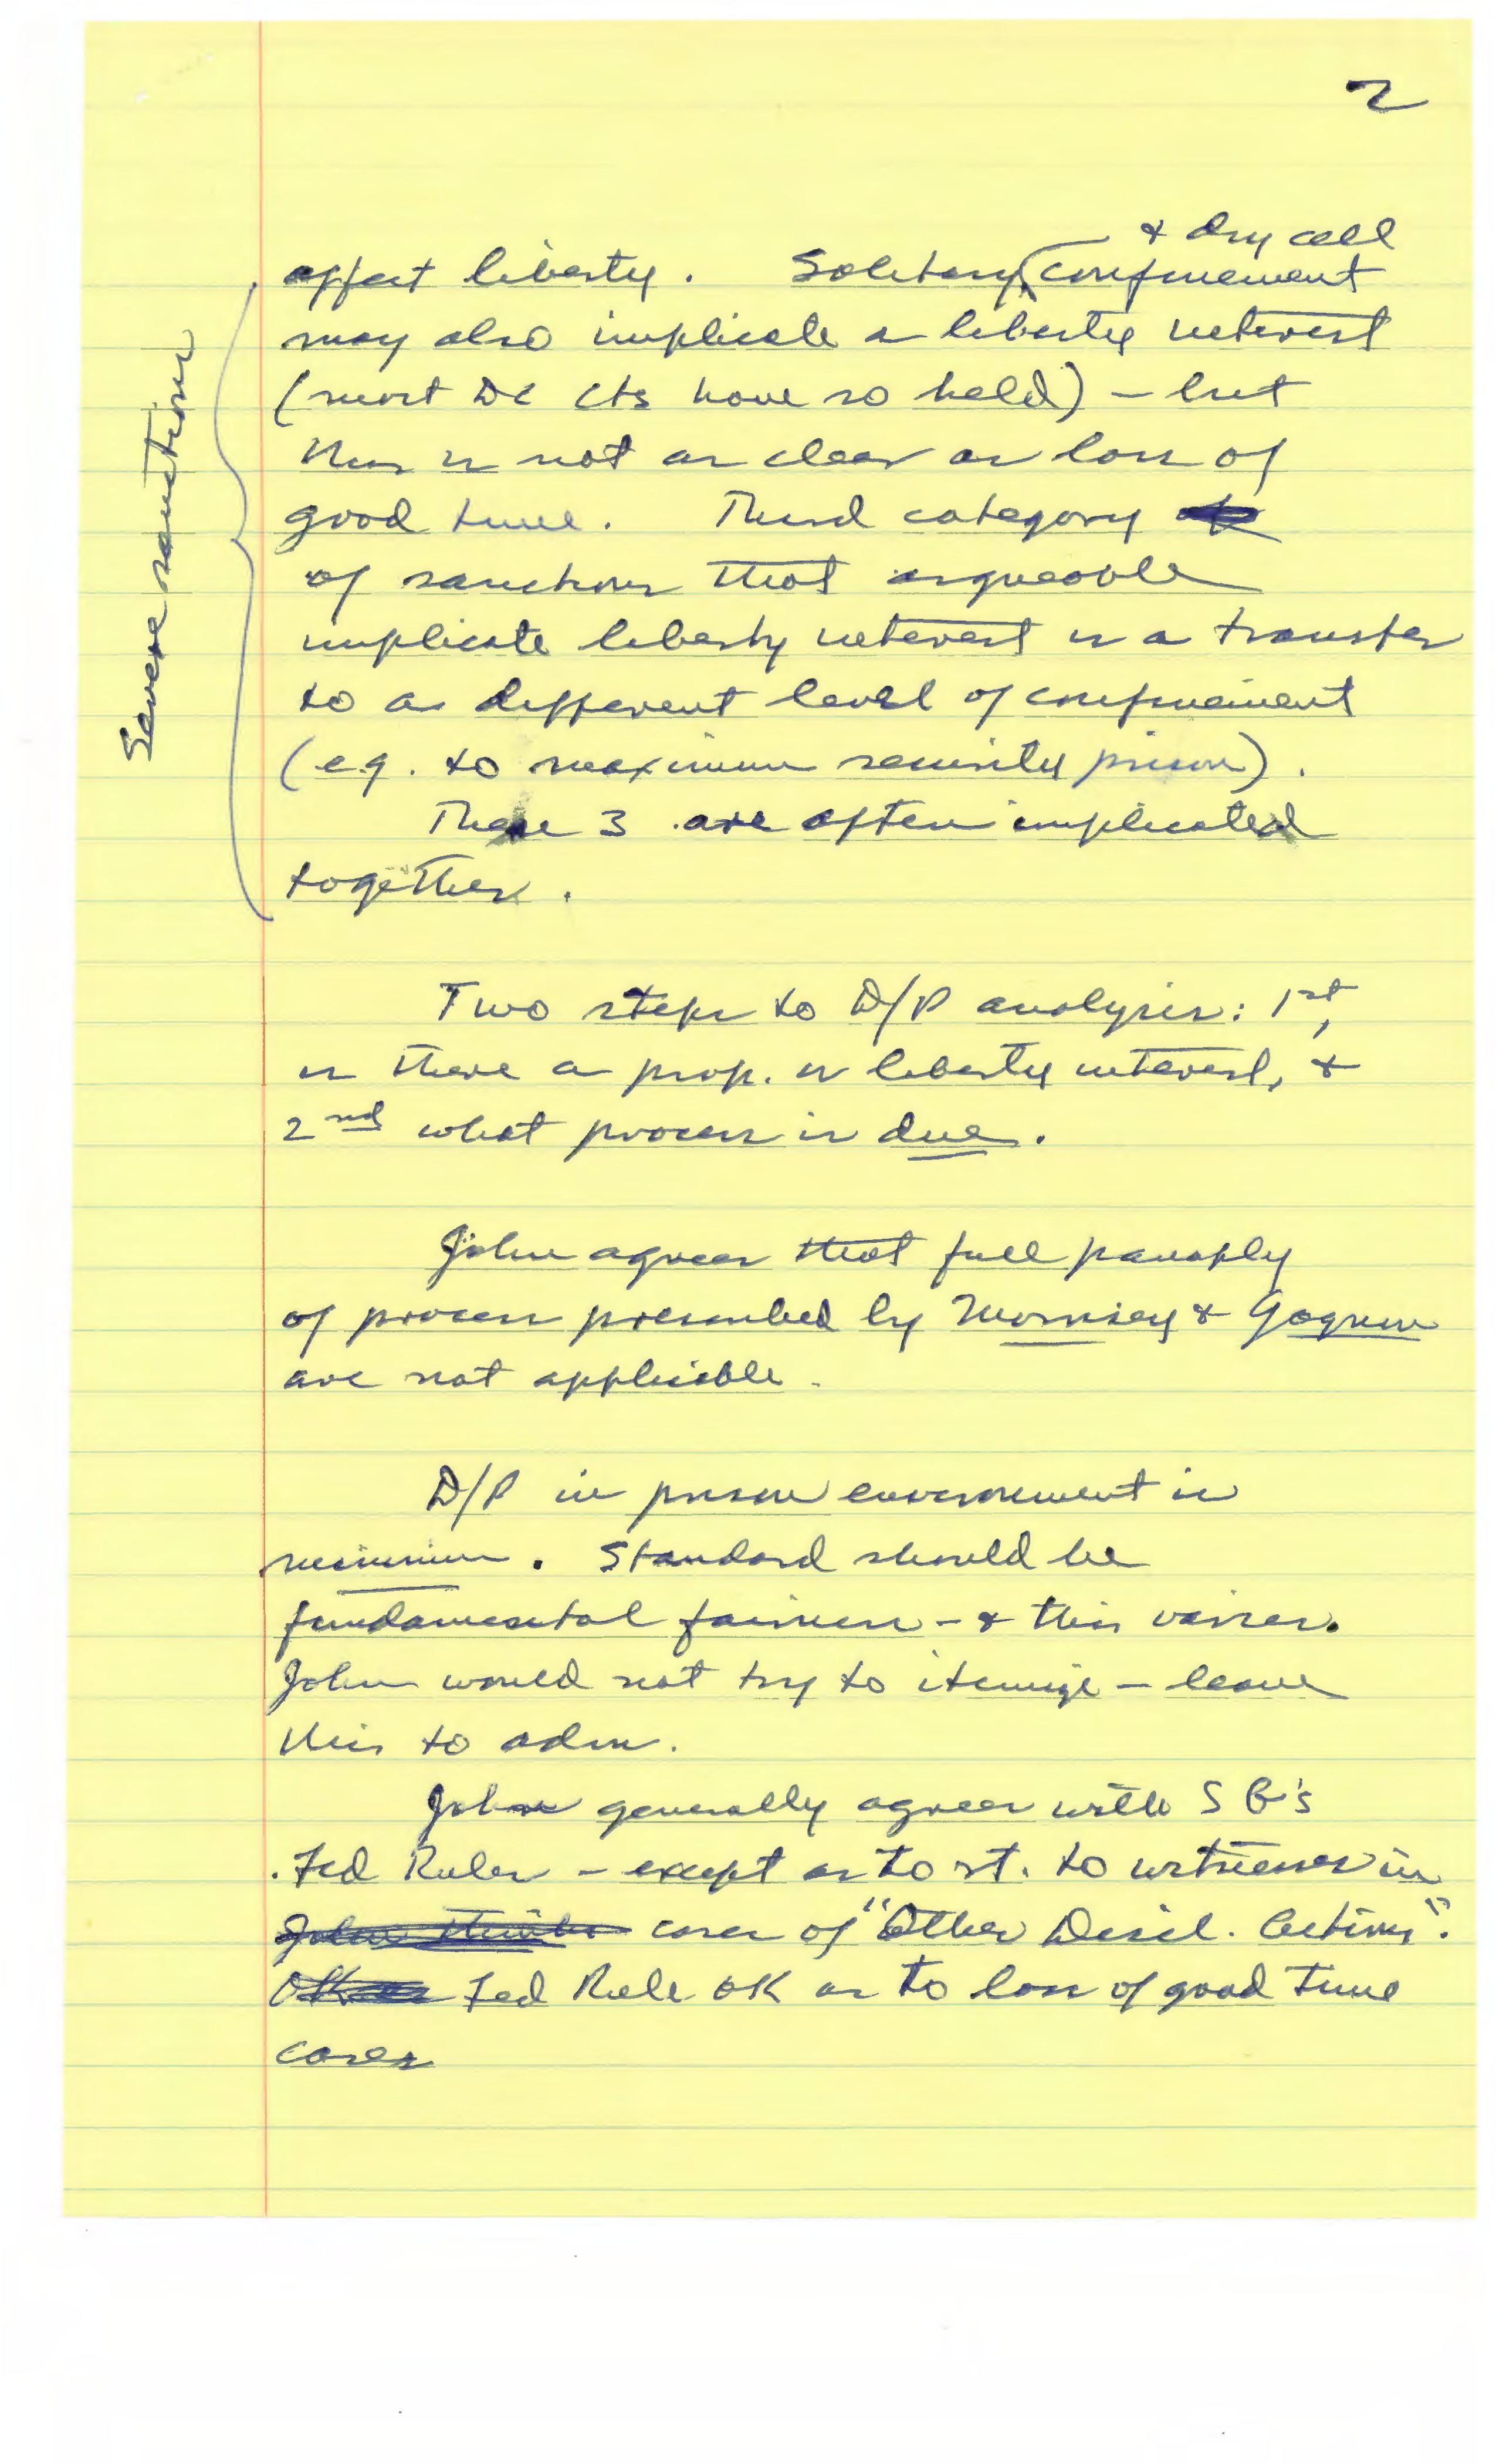 2
& dry cell
affect liberty. Solitary confinement
may also implicate a liberty interest
(most DC cts have so held) - but
this is not as clear as loss of
good time. Third category
of sanctions that arguable
implicate liberty interest is a transfer
to a different level of confinement
(e.g. to maximum security prison).
These 3 are often implicated
together.
Severe sanctions
Two steps to D/P analysis: 1st,
is there a prop. or liberty interest, &
2nd what process is due.
John agrees that full panoply
of process prescribed by Morrissey & Gagnon
are not applicable.
D/P in prison environment is
minimum. Standard should be
fundamental fairness - & this varies.
John would not try to itemize - leave
this to adm.
John generally agrees with S G's
Fed Rules - except as to rt. to witnesses in
John thinks cases of "Other Discl. Actions".
Fed Rule OK as to loss of good time
cases